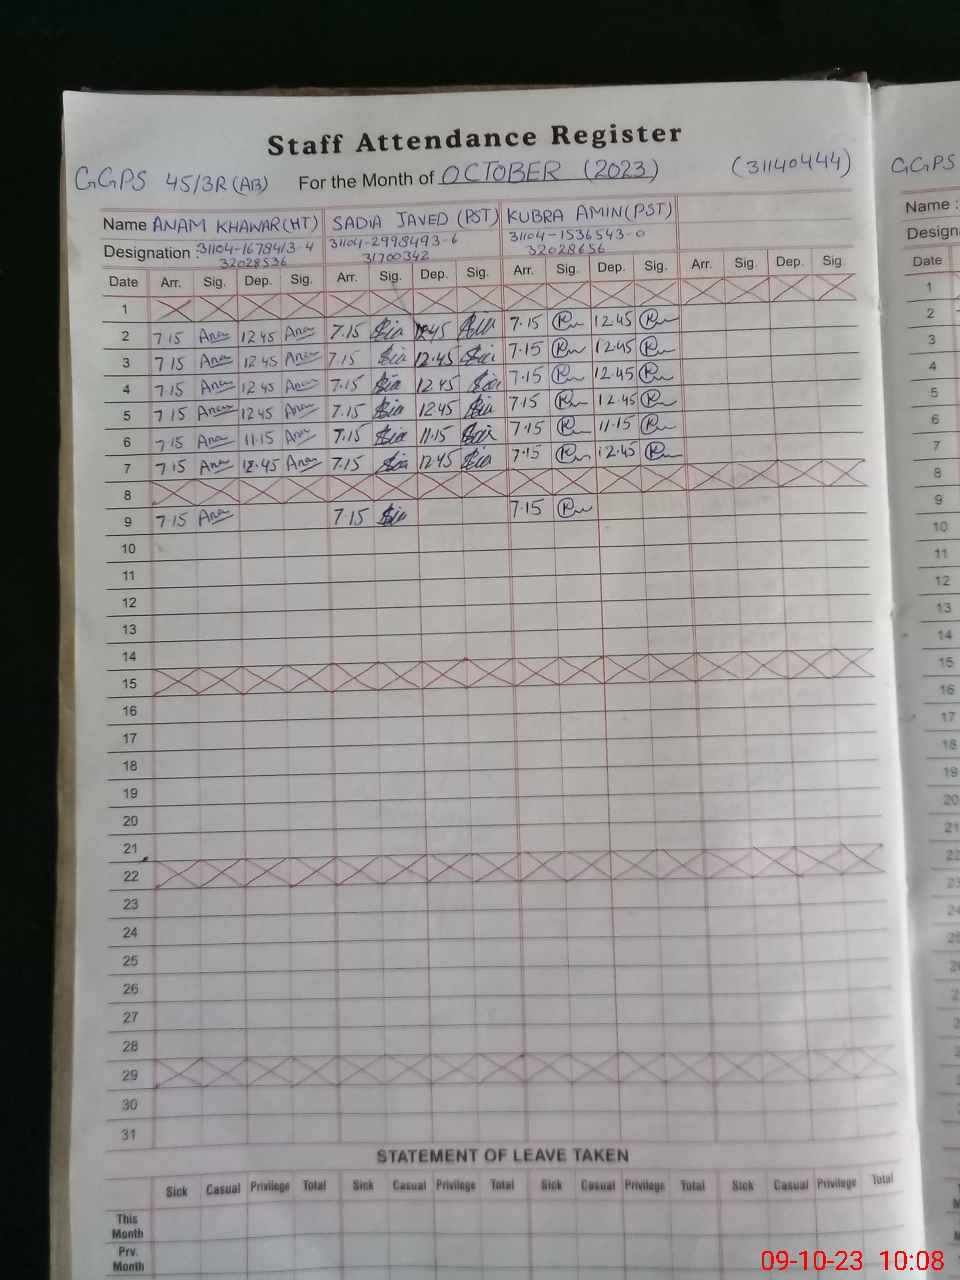 Staff Attendance Register
GGPS 45/3R (AB) For the Month of OCTOBER (2023) (31140444) GGPS
Name ANAM KHAWAR(HT) SADIA JAVED (PST) KUBRA AMIN(PST) Name :
Designation : 31104-1678413-4 31104-2998493-6 31104-1536543-0
32028536 31700342 32028656
Date Arr. Sig. Dep. Sig. Arr. Sig. Dep. Sig. Arr. Sig. Dep. Sig. Arr. Sig. Dep. Sig. Date
1 1
2 7.15 Anam 12.45 Anam 7.15 12.45 7.15 12.45 2
3 7.15 Anam 12.45 Anam 7.15 12.45 7.15 12.45 3
4 7.15 Anam 12.45 Anam 7.15 12.45 7.15 12.45 4
5 7.15 Anam 12.45 Anam 7.15 12.45 7.15 12.45 5
6 7.15 Anam 11.15 Anam 7.15 11.15 7.15 11.15 6
7 7.15 Anam 12.45 Anam 7.15 12.45 7.15 12.45 7
8 8
9 7.15 Anam 7.15 7.15 9
10 10
11 11
12 12
13 13
14 14
15 15
16 16
17 17
18 18
19 19
20 20
21 21
22 22
23 23
24 24
25
26
27
28
29
30
31
STATEMENT OF LEAVE TAKEN
Sick Casual Privilege Total Sick Casual Privilege Total Sick Casual Privilege Total Sick Casual Privilege Total
This
Month
Prv.
Month
09-10-23 10:08